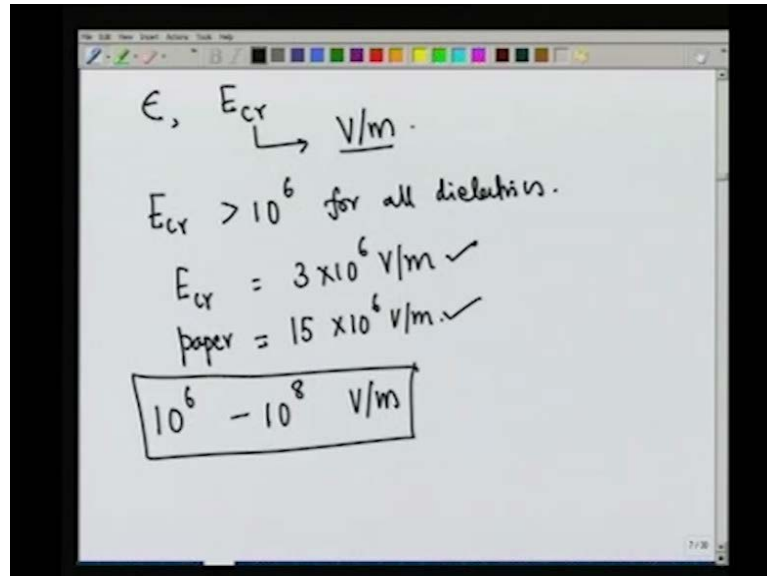 File Edit View Insert Actions Tools Help
ϵ, E_cr
V/m.
E_cr > 10^6 for all dielectrics.
E_cr = 3 × 10^6 V/m ✓
paper = 15 × 10^6 V/m. ✓
10^6 - 10^8 V/m
7/30